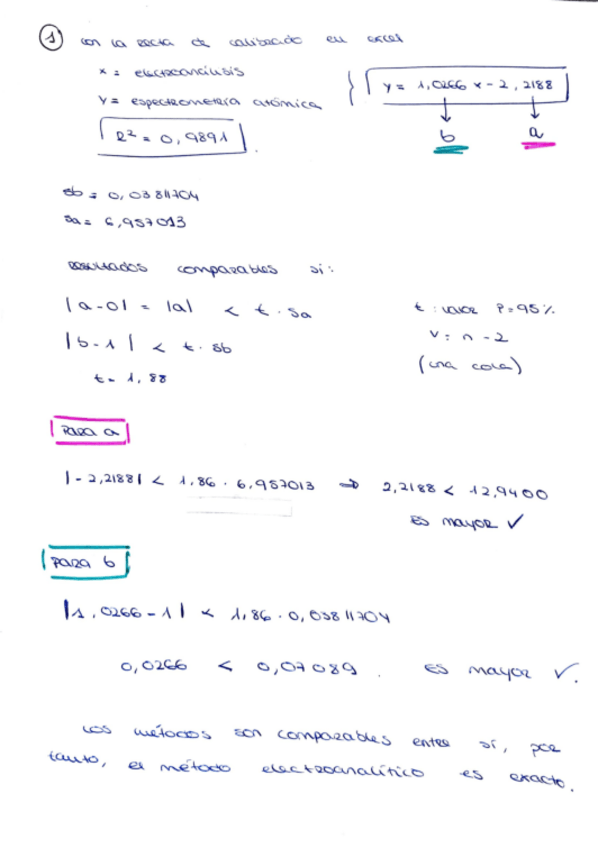 1 con la recta de calibrado en excel
x = electroanálisis
y = espectrometría atómica
y = 1,0266 x - 2,2188
b a
R² = 0,9891
sb = 0,03811704
sa = 6,957013
resultados comparables si:
|a-0| = |a| < t · sa
t : valor P=95%
|b-1| < t · sb
v = n - 2
(una cola)
t = 1,88
Para a
|-2,2188| < 1,86 · 6,957013 ⇒ 2,2188 < 12,9400
Es mayor ✓
Para b
|1,0266-1| < 1,86 · 0,03811704
0,0266 < 0,07089. Es mayor ✓.
Los métodos son comparables entre sí, por
tanto, el método electroanalítico es exacto.